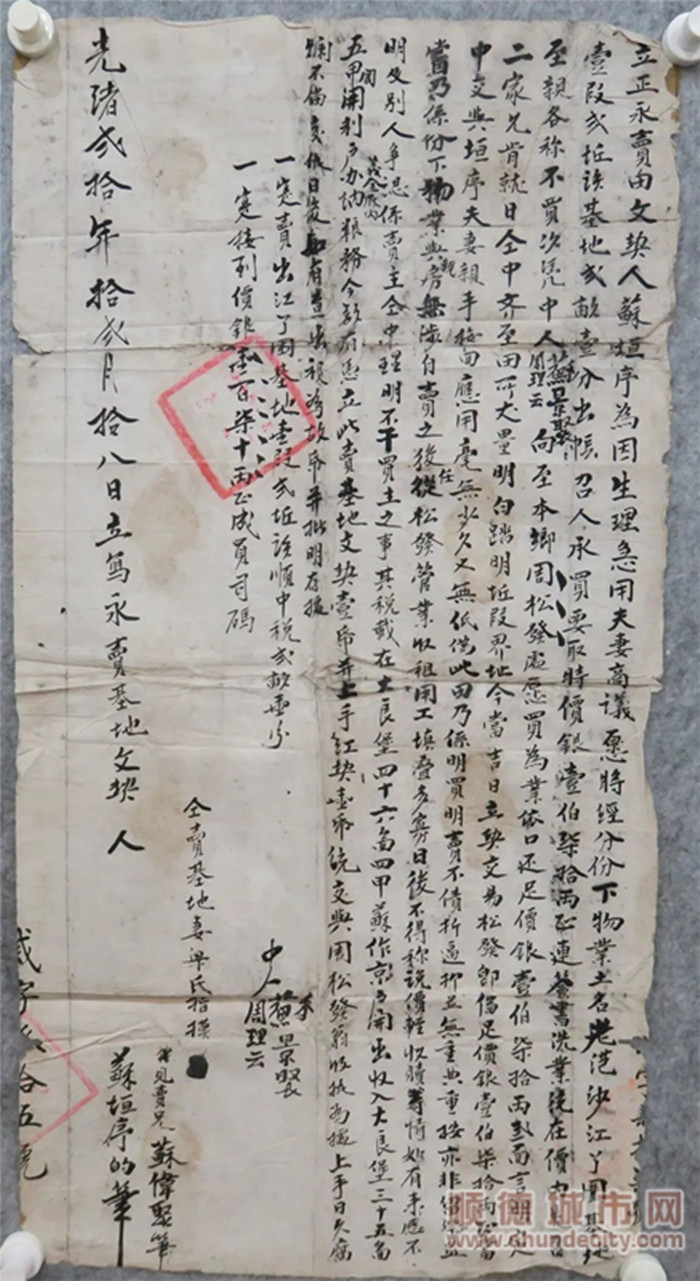 立正永賣田文契人蘇垣序為因生理急用夫妻商議愿將經分份下物業土名老范沙江丫圍基地
壹段弍坵該基地弍畝壹分出帳召人承買要取時價銀壹伯柒拾两正連簽書洗業统在價內
至親各称不買次凴中人蘇景聚周理云向至本鄉周松發處愿買為業依口还足價銀壹伯柒拾两對面言明
二家允肯就日仝中齐至田所丈量明白踏明坵段界址今當吉日立契交易松發即偹足價銀壹伯柒拾两正當
中交與垣序夫妻親手接回應用毫無少欠又無低偽此田乃係明買明賣不債折逼抑並無重典重按亦非
嘗乃係份下物業與房親無涉自賣之後任從松發管業收租用工填叠多寡日後不得称説價輕收贖等情如有来歷不
明及別人争思係賣主仝中理明不干買主之事其税載在大良堡四十六啚四甲蘇作京戶開出收入大良堡三十五啚
五甲周利戶办納粮務今欲有憑立此賣基地文契壹帋并上手红契壹帋统交與周松發翁收执為據上手日久腐
爛不偹交俄日後如有查出視為故帋并批明存據
一寔賣出江丫圍基地壹段弍坵該順中税弍畝壹分
一寔接到價銀壹百柒十两正成員司碼
中人蘇景聚
周理云
仝賣基地妻 氏指摸
見賣兄蘇偉聚筆
蘇垣序的筆
光緒弍拾年拾弍月拾八日立寫永賣基地文契人
拾五號
順德城市网
www.shundecity.com